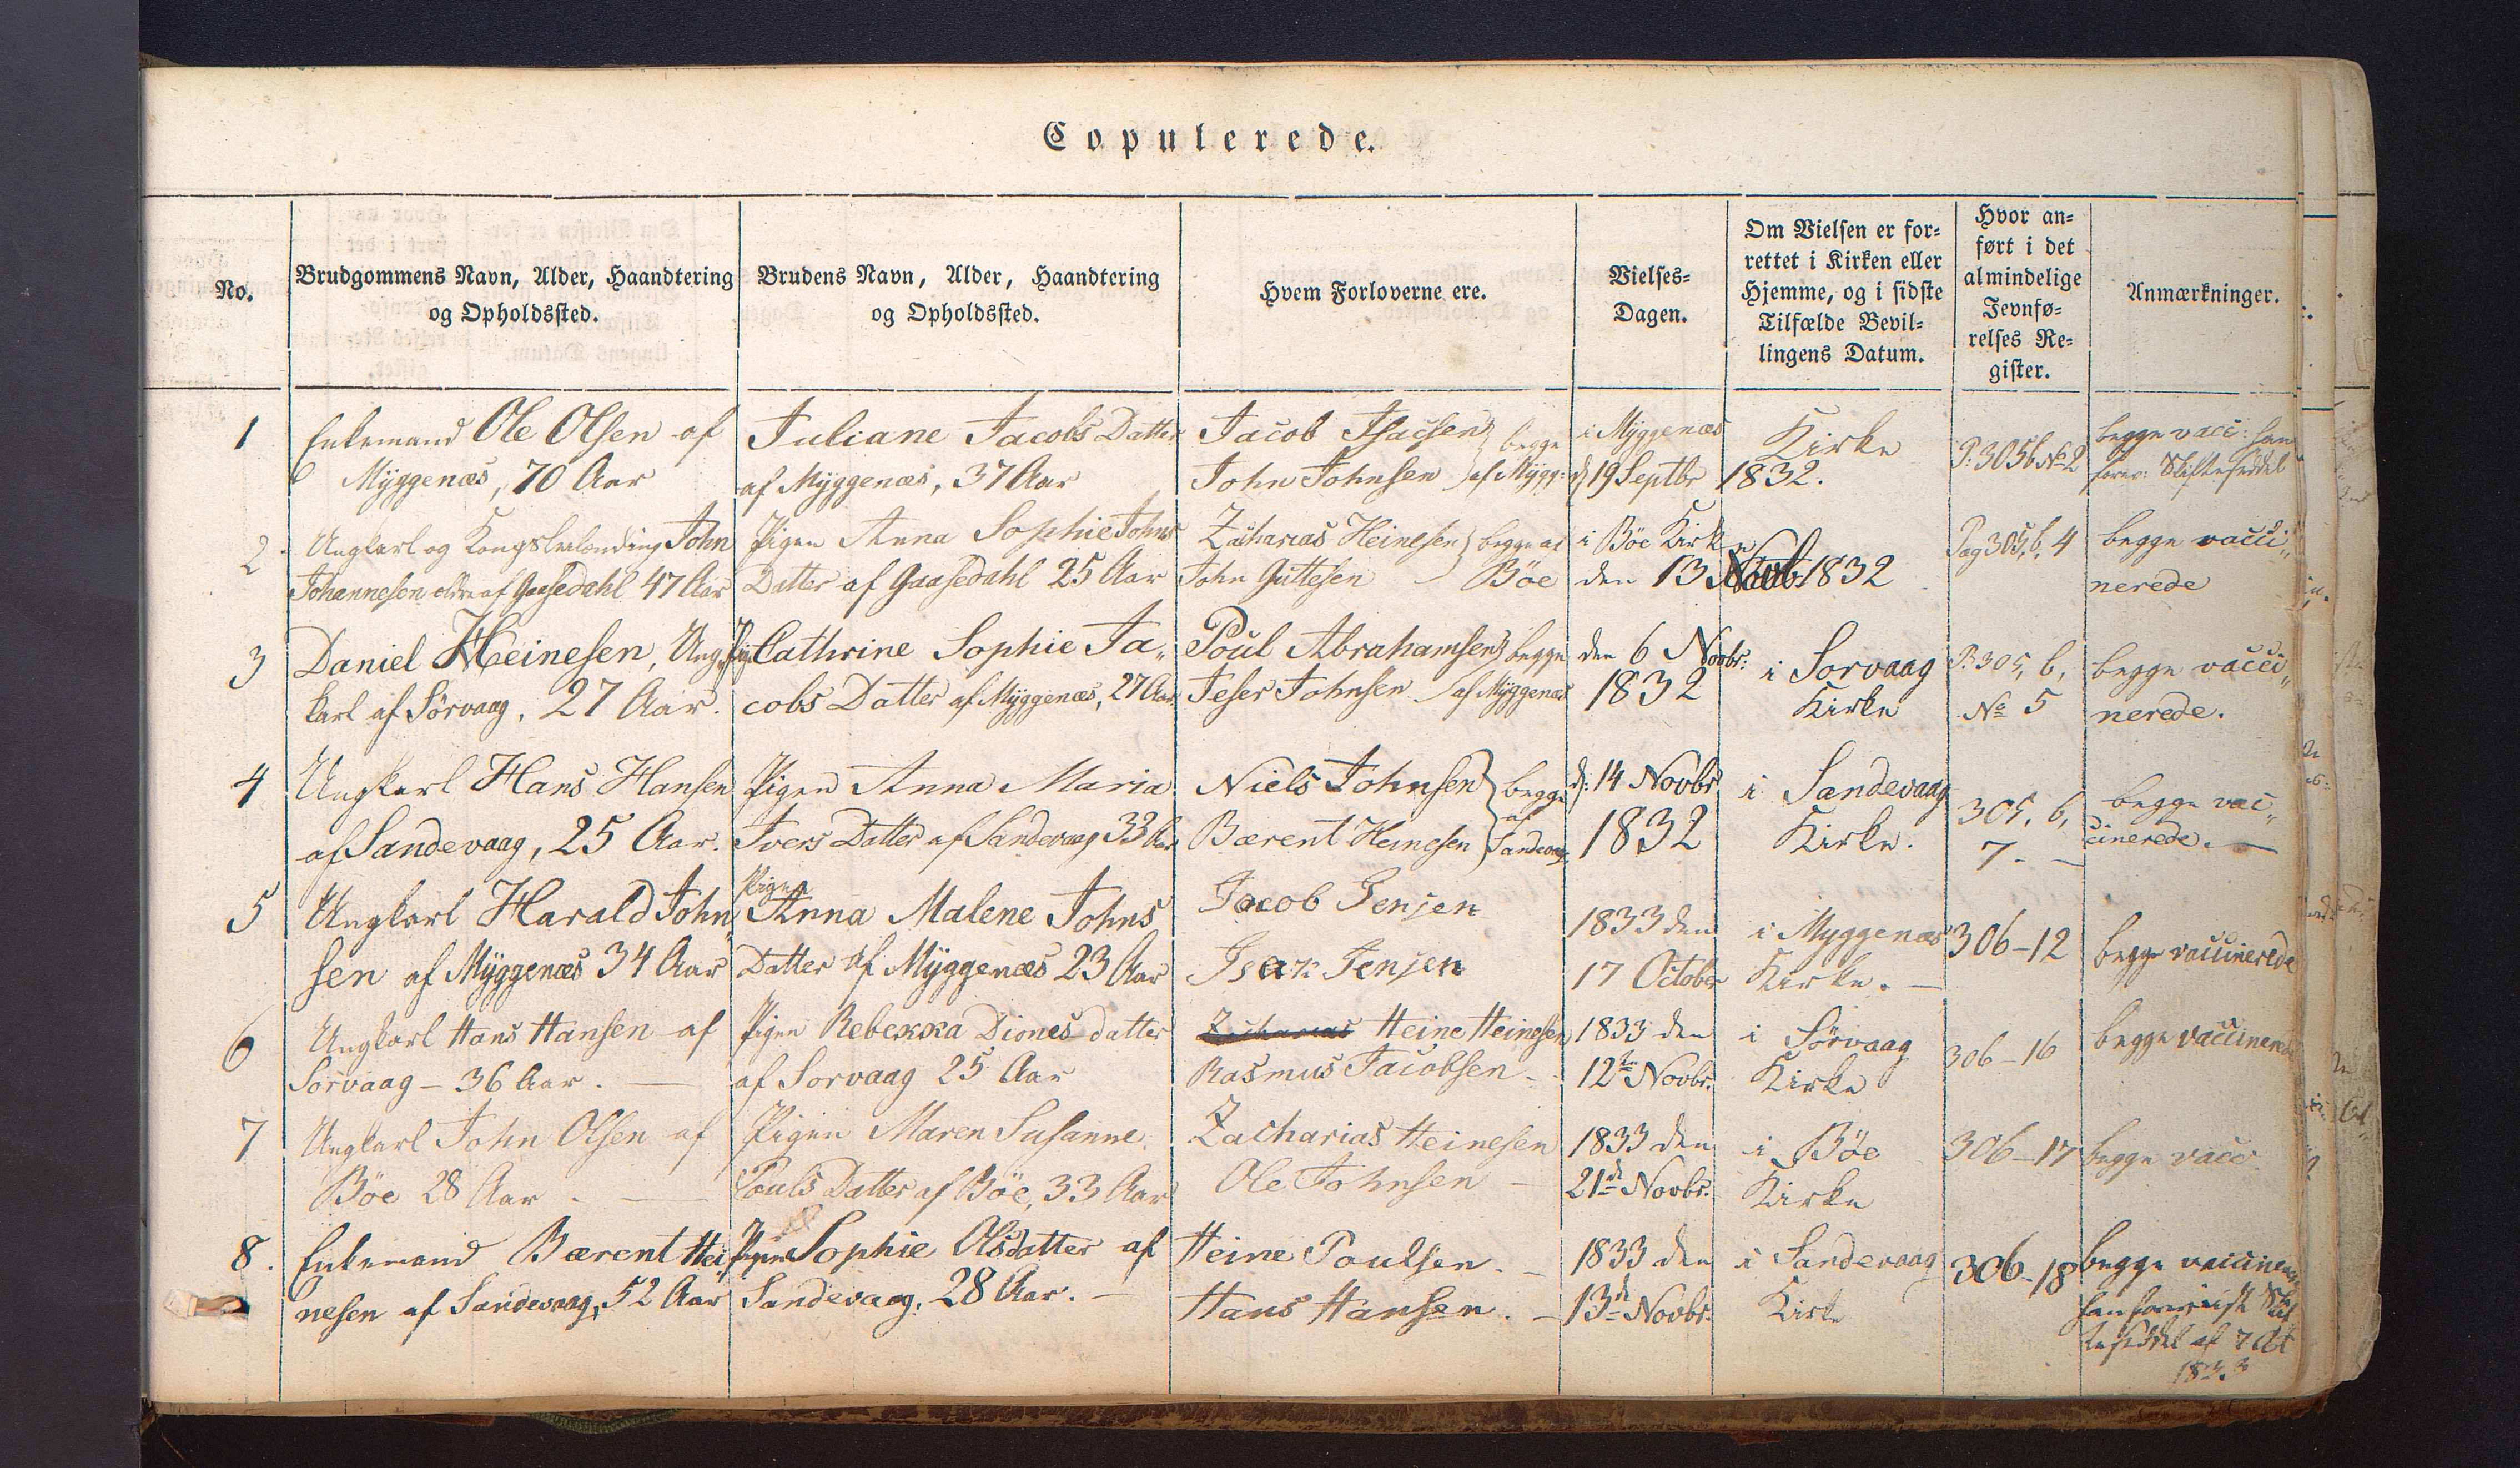 Copulerede.
No.
Brudgommens Navn, Alder, Haandtering
og Opholdssted.
Brudens Navn, Alder, Haandtering
og Opholdssted.
Hvem Forloverne ere.
Vielses-
Dagen.
Om Vielsen er for-
rettet i Kirken eller
Hjemme, og i sidste
Tilfælde Bevil-
lingens Datum.
Hvor an-
ført i det
almindelige
Jevnfø-
relses Re-
gister.
Anmærkninger.
1
Enkemand Ole Olsen af
Myggenæs, 70 Aar
Juliane Jacobs Datter
af Myggenæs, 37 Aar
Jacob Isacsen } begge
John Johnsen } af Mygg:
i Myggenæs
d 19 Septbr
Kirke
1832.
P: 305 b No 2
begge vacc: han
forev: Skifteseddel
2
Ungkarl og Kongslænding John
Johannesen ældre af Gaasedahl 47 Aar
Pigen Anna Sophie Johns
Datter af Gaasedahl 25 Aar
Zacharias Heinesen } begge af
John Guttesen } Böe
i Böe Kirke
den 13 Novb. 1832
Pag 305, b, 4
begge vacci„
nerede
3
Daniel Heinesen, Ung„
karl af Sörvaag, 27 Aar.
Pig. Cathrine Sophie Ja„
cobs Datter af Myggenæs, 27 Aar.
Poul Abrahamsen } begge
Jeser Johnsen } af Myggenæs
den 6 Novbr:
1832
i Sorvaag
Kirke
P. 305, b,
No 5
begge vacci„
nerede.
4
Ungkarl Hans Hansen
af Sandevaag, 25 Aar.
Pigen Anna Maria
Ivers Datter af Sandevaag 33 Aar
Niels Johnsen } begge
Bærent Heinesen } af Sandevaag
d: 14 Novbr
1832
i Sandevaag
Kirke.
305, b,
7.
begge vac„
cinerede.
5
Ungkarl Harald John„
sen af Myggenæs 34 Aar
Pigen
Anna Malene Johns
Datter af Myggenæs 23 Aar
Jacob Jensen
Isak Jensen
1833 den
17 October
i Myggenæs
Kirke.
306-12
begge vaccinerede
6
Ungkarl Hans Hansen af
Sorvaag - 36 Aar.
Pigen Rebekka Diones datter
af Sorvaag 25 Aar
Zacharias Heine Heinesen
Rasmus Jacobsen
1833 den
12te Novbr.
i Sörvaag
Kirke
306-16
begge vaccinerede
7
Ungkarl John Olsen af
Böe 28 Aar.
Pigen Maren Susanne
Pouls Datter af Böe, 33 Aar
Zacharias Heinesen
Ole Johnsen
1833 den
21de Novbr.
i Böe
Kirke
306-17
begge vacc
8.
Enkemand Bærent Hei„
nesen af Sandevaag, 52 Aar
Pigen Sophie Olsdatter af
Sandevaag, 28 Aar.
Heine Poulsen.
Hans Hansen.
1833 den
13de Novbr.
i Sandevaag
Kirke
306-18
begge vaccinerede
han foreviist Skif
teseddel af 7 Oct
1833